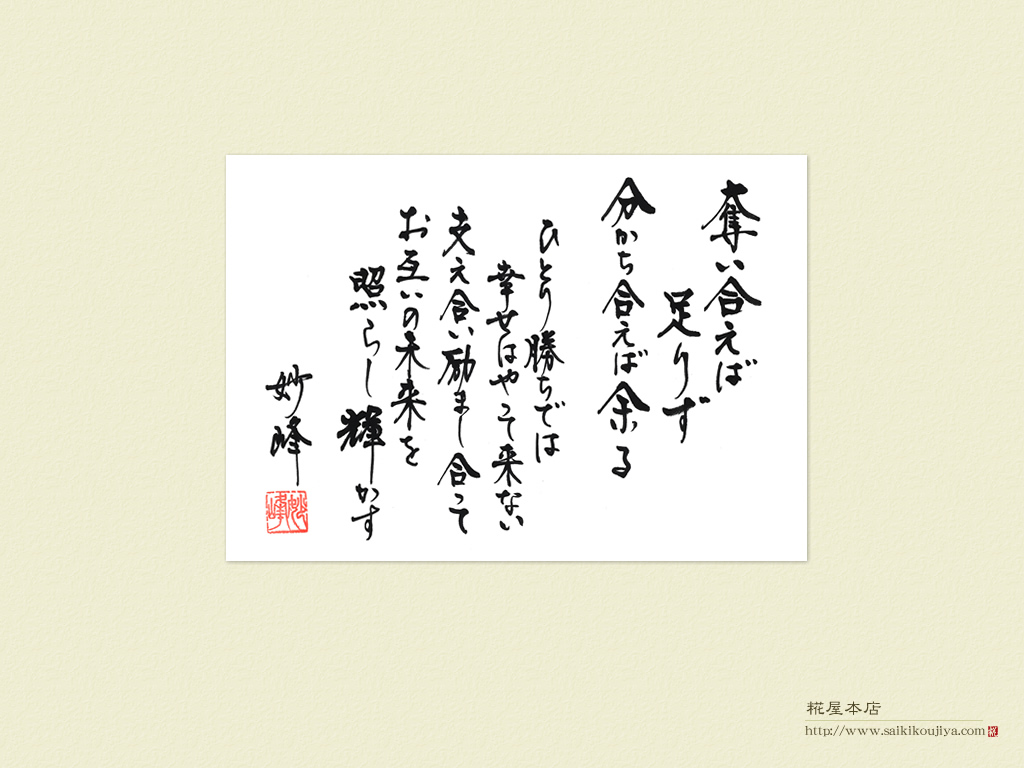 奪い合えば
足りず
分かち合えば余る
ひとり勝ちでは
幸せはやって来ない
支え合い励まし合って
お互いの未来を
照らし輝かす
妙峰
妙峰
糀屋本店
http://www.saikikoujiya.com
糀